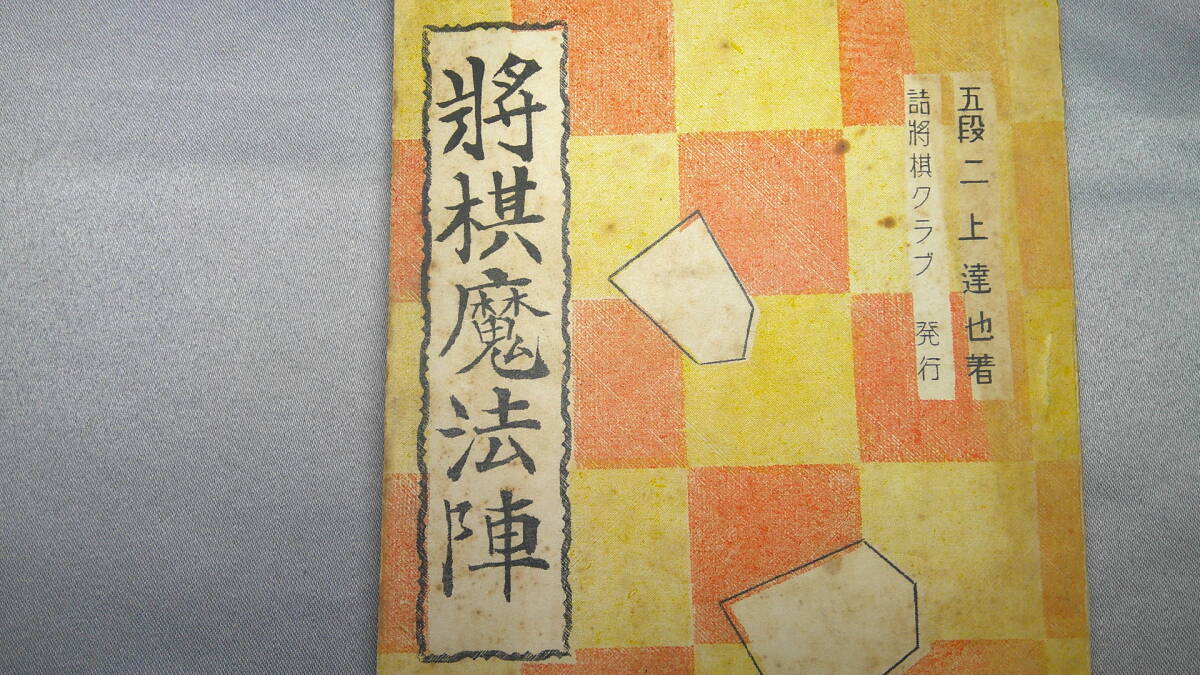 五段二上達也著
詰將棋クラブ 発行
將棋魔法陣